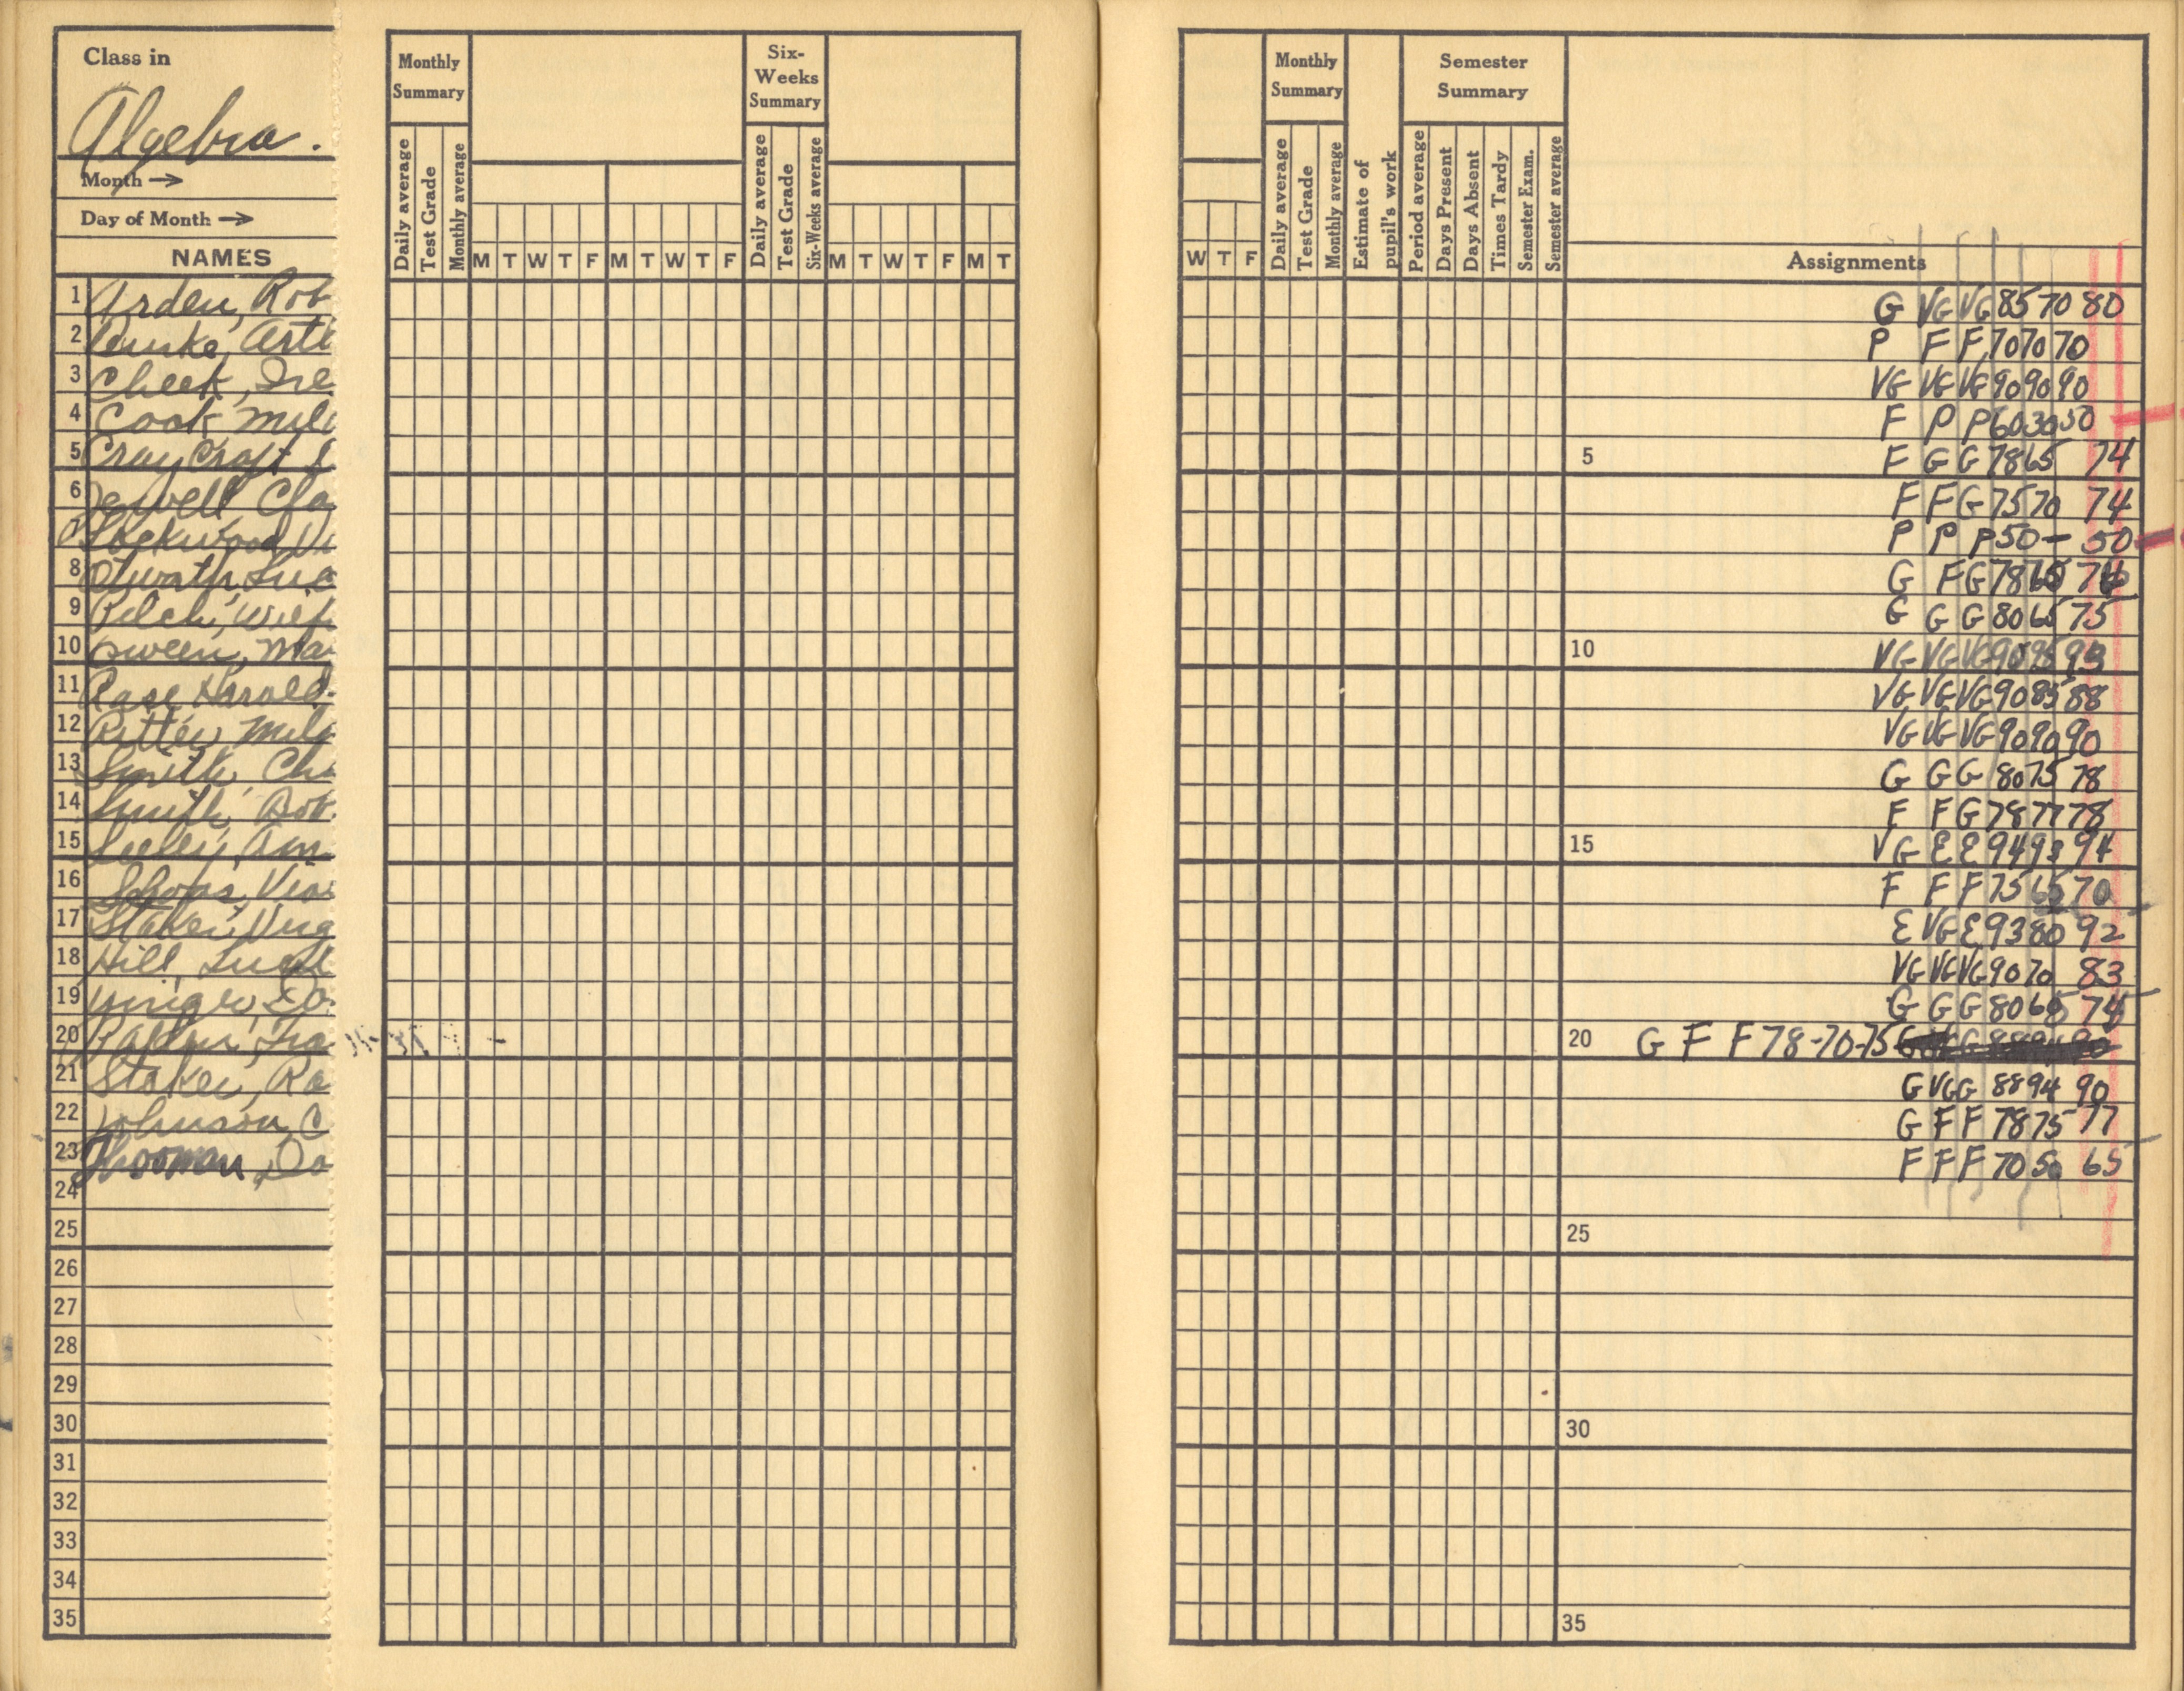 Class in
Algebra.
Month →
Day of Month →
NAMES
Monthly Summary
Six-Weeks Summary
Monthly Summary
Semester Summary
Daily average Test Grade Monthly average
Daily average Test Grade Six-Weeks average
Daily average Test Grade Monthly average
Estimate of pupil's work
Period average Days Present Days Absent Times Tardy Semester Exam. Semester average
M T W T F M T W T F M T W T F M T
W T F
Assignments
1 Arden, Rob G VG VG 85 70 80
2 Arti P F F 70 70 70
3 Cheek, Ire VG VG VG 90 90 90
4 Cook Mil F P P 60 30 50
5 Cray Craft 5 F G G 78 65 74
6 Jewell Cla F F G 75 70 74
7 Lockwood Vi P P P 50 — 50
8 Luc G F G 78 65
9 Pelch, Wilf G G G 80 65 75
10 Ma 10 VG VG VG
11 Rase Harold VG VG VG 90 85 88
12 Ritter Mild VG VG VG 90 90 90
13 Smith, Cha G G G 80 75 78
14 Smith Bob F F G 78 77 78
15 Seeley, Am 15 VG E E 94 93 94
16 F F F 75 65 70
17 Staker, Virg E VG E 93 80 92
18 Hill, Lucil VG VG VG 90 70 83
19 G G G 80 74
20 Fra 20 G F F 78-70-75
21 Staker, Ra G VG G 88 94 90
22 Johnson, C G F F 78 75 77
23 Thooman, Do F F F 70 50 65
24
25 25
26
27
28
29
30 30
31
32
33
34
35 35